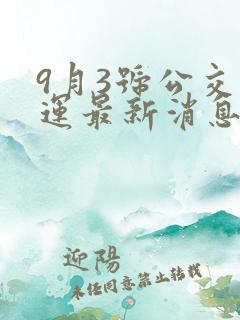 9月3號公交
運最新消息
迎陽
未任同意禁止转载